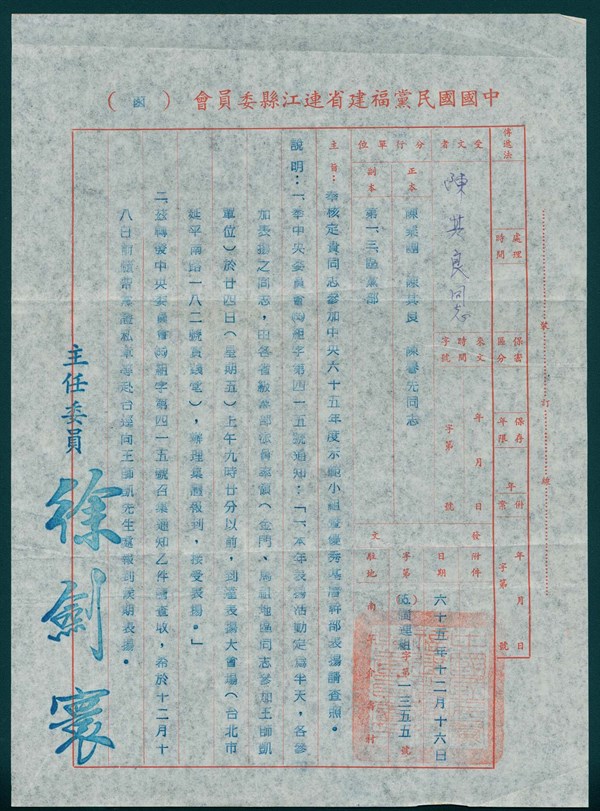 中國國民黨福建省連江縣委員會（函）
裝訂線
傳遞法
處理時間
保密區分
保存年限
年
併案
年月日
字第號
受文者
陳其良同志
來文
時間
字號
年月日
字第號
發附件
日期
六十五年十二月十六日
字第
字第一三五五號
文駐地
南竿介壽村
分行單位
正本
陳其良
同志
副本
主旨：奉核定貴同志參加中央六十五年度示範小組暨優秀基層幹部表揚請查照。
說明：一、奉中央委員會
字第四一五號通知：「一、本年表揚活動定為半天，各參
加表揚之同志，由各省級黨部派員率領（金門、馬祖地區同志參加王師凱
單位）於廿四日（星期五）上午九時廿分以前，到達表揚大會場（台北市
延平南路一八二號實踐堂），辦理集體報到，接受表揚。」
二、茲轉發中央委員會
字第四一五號召集通知乙件請查收，希於十二月十
八日前
赴台逕向王師凱先生處報到候期表揚。
主任委員
徐劍寰